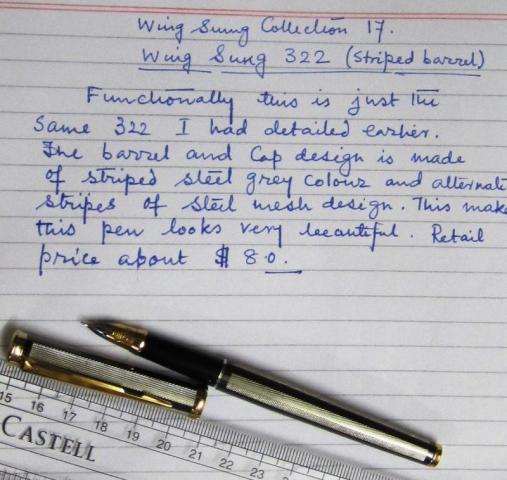 Wing Sung Collection 17.
Wing Sung 322 (striped barrel)
Functionally this is just the
Same 322 I had detailed earlier.
The barrel and Cap design is made
of striped steel grey colour and alternate
stripes of steel mesh design. This make
this pen looks very beautiful. Retail
price about $ 80.
15 16 17 18 19 20 21 22 23
CASTELL